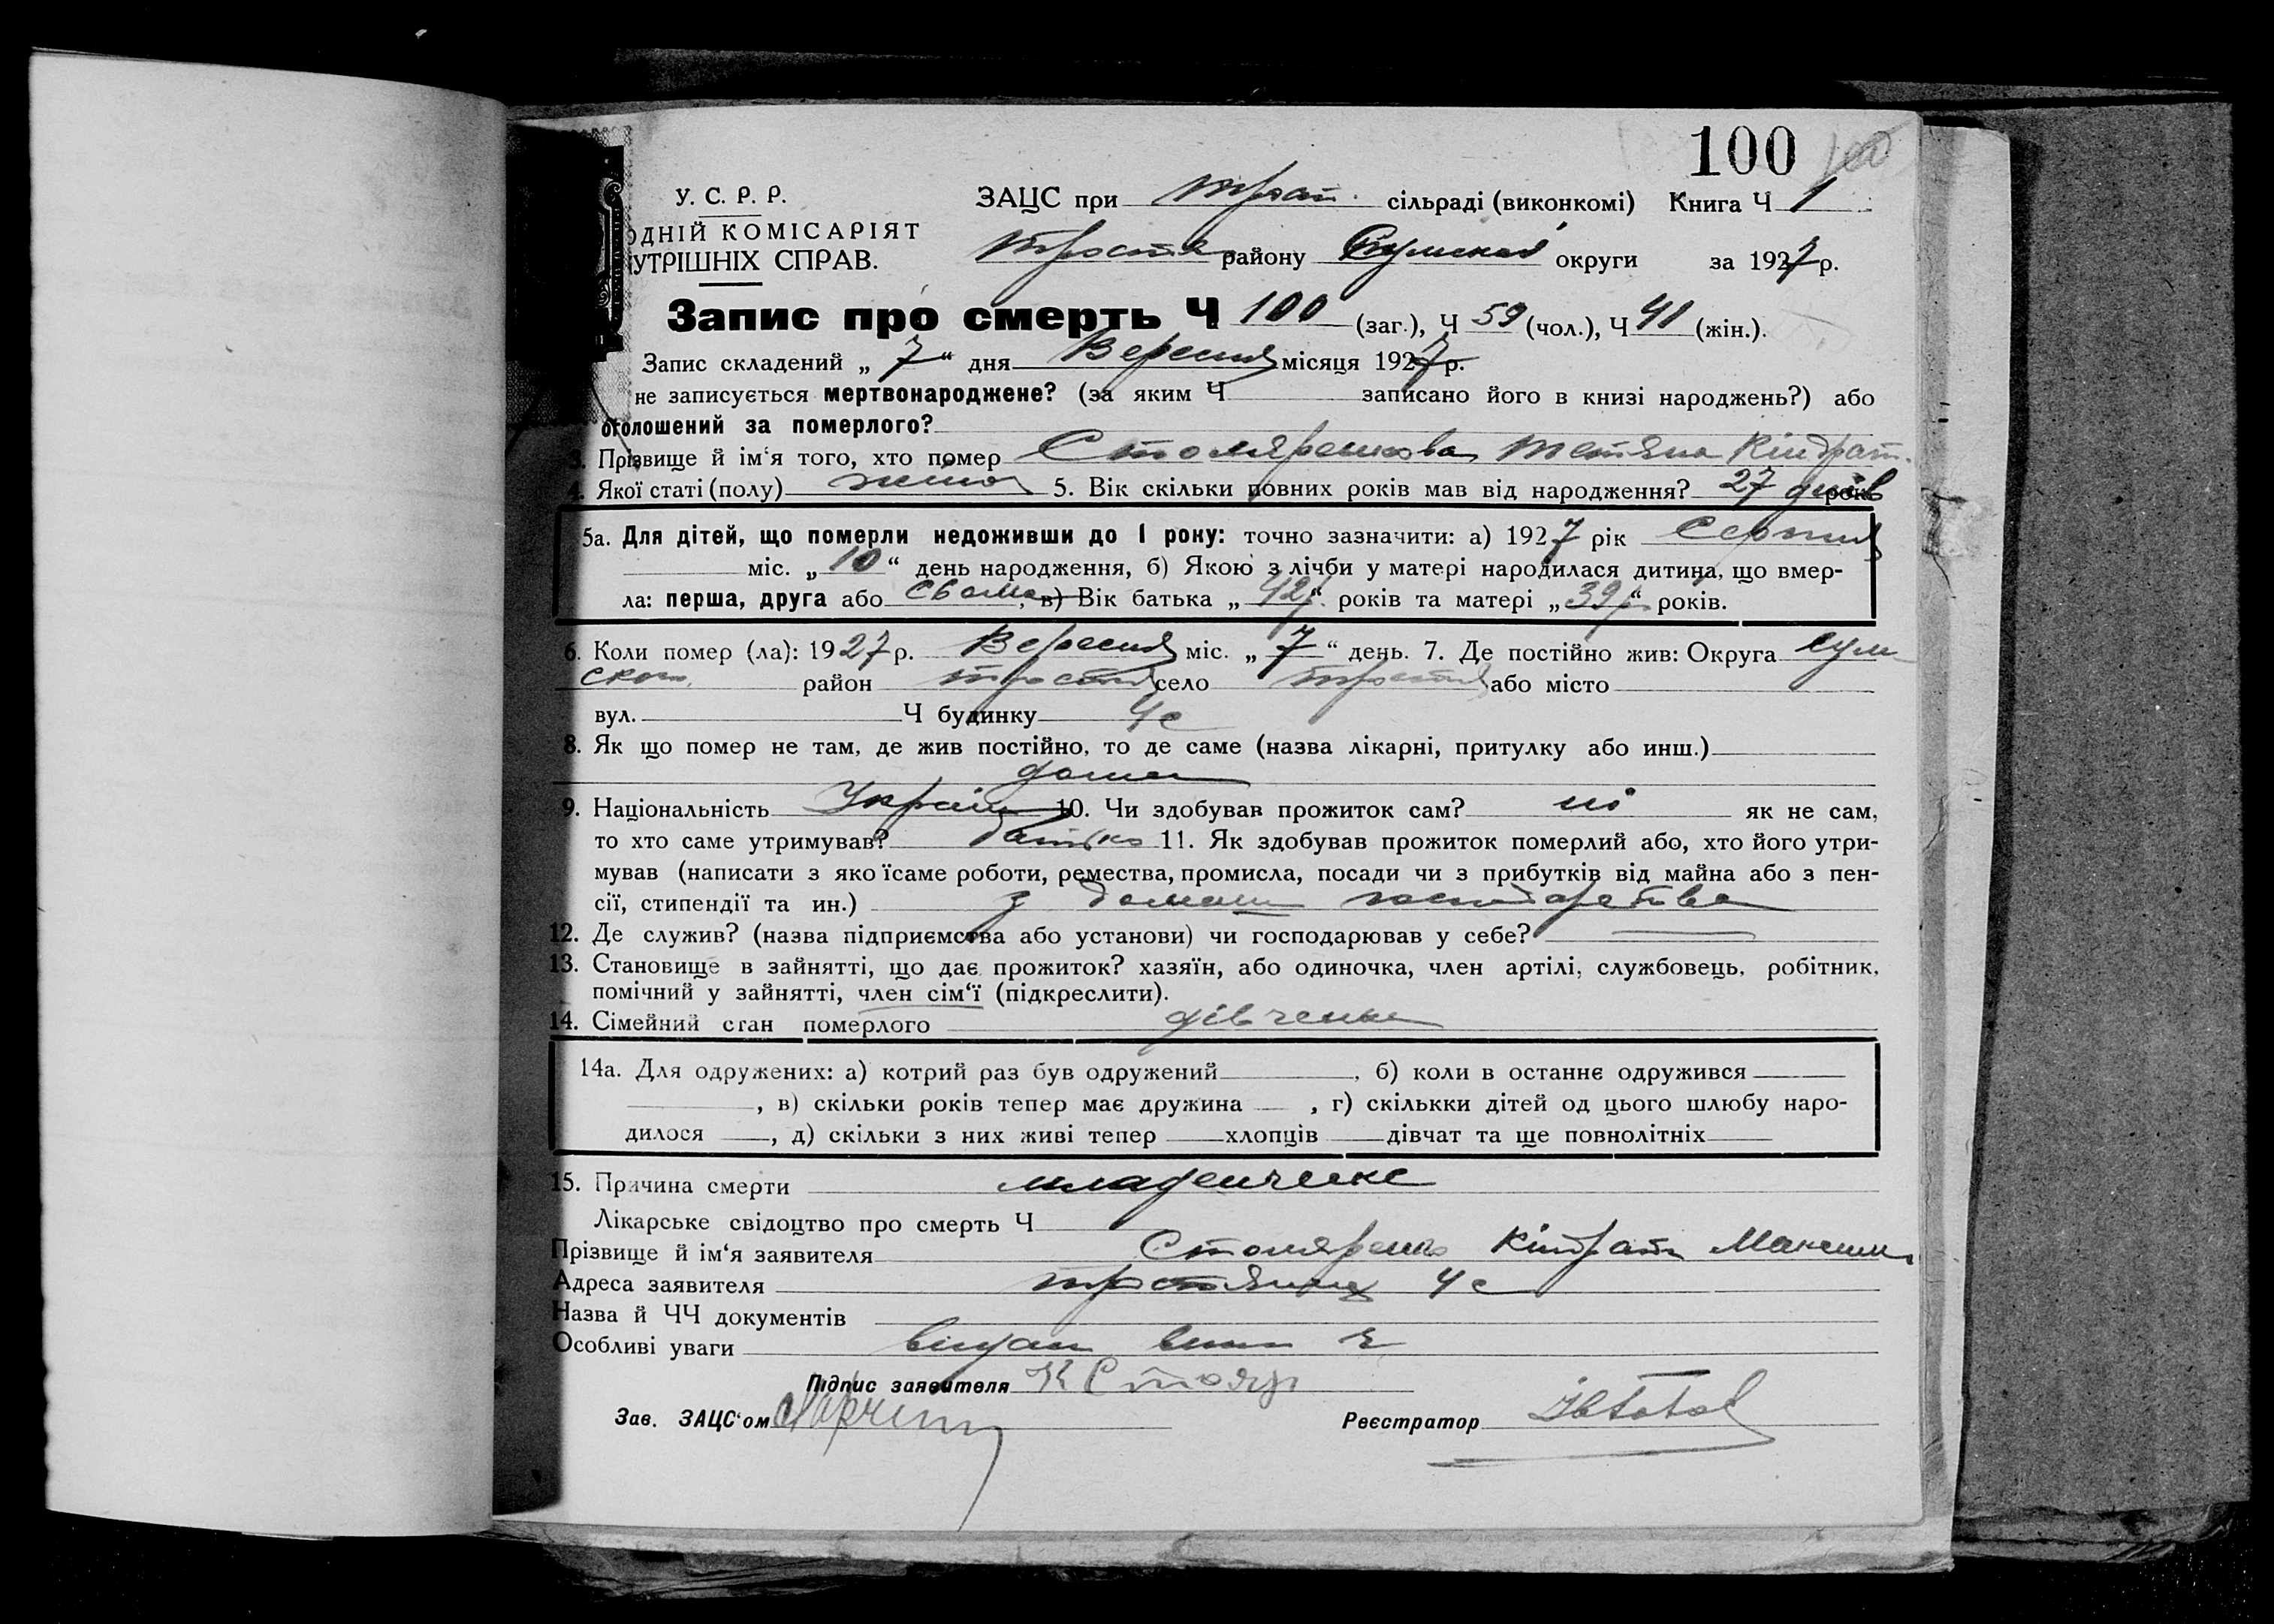 100 100
У. С. Р. Р.
ОДНІЙ КОМІСАРІЯТ
УТРІШНІХ СПРАВ.
ЗАЦС при Трост. сільраді (виконкомі) Книга Ч 1
Тростян району Сумської округи за 1927 р.
Запис про смерть Ч 100 (заг.), Ч 59 (чол.), Ч 41 (жін.).
Запис складений „ 7 “ дня Вересня місяця 1927 р.
не записується мертвонароджене? (за яким Ч записано його в книзі народжень?) або
оголошений за померлого?
3. Прізвище й ім‘я того, хто помер Столяренкова Тетяна Кіндрат.
4. Якої статі (полу) жіноч 5. Вік скільки повних років мав від народження? 27 днів рок
5а. Для дітей, що померли недоживши до 1 року: точно зазначити: а) 1927 рік Серпня
міс. „ 10 “ день народження, б) Якою з лічби у матері народилася дитина, що вмер-
ла: перша, друга або сьома, в) Вік батька „ 42 р. “ років та матері „ 39 р. “ років.
6. Коли помер (ла): 1927 р. Вересня міс. „ 7 “ день. 7. Де постійно жив: Округа Сум-
ської район Тростян село Тростян або місто
вул. Ч будинку 4с
8. Як що помер не там, де жив постійно, то де саме (назва лікарні, притулку або инш.)
дома
9. Національність Україн 10. Чи здобував прожиток сам? ні як не сам,
то хто саме утримував? батько 11. Як здобував прожиток померлий або, хто його утри-
мував (написати з яко їсаме роботи, ремества, промисла, посади чи з прибутків від майна або з пен-
сії, стипендії та ин.) з домашн господарства
12. Де служив? (назва підприємства або установи) чи господарював у себе?
13. Становище в зайнятті, що дає прожиток? хазяїн, або одиночка, член артілі, службовець, робітник,
помічний у зайнятті, член сім‘ї (підкреслити).
14. Сімейний стан померлого дівченка
14а. Для одружених: а) котрий раз був одружений , б) коли в останнє одружився
, в) скільки років тепер має дружина , г) скількки дітей од цього шлюбу наро-
дилося , д) скільки з них живі тепер хлопців дівчат та ще повнолітніх
15. Причина смерти младенческе
Лікарське свідоцтво про смерть Ч
Прізвище й ім‘я заявителя Столяренко Кіндрат Максим
Адреса заявителя Тростянець 4с
Назва й ЧЧ документів
Особливі уваги видан
Підпис заявителя К Столяр
Зав. ЗАЦС‘ом Реєстратор